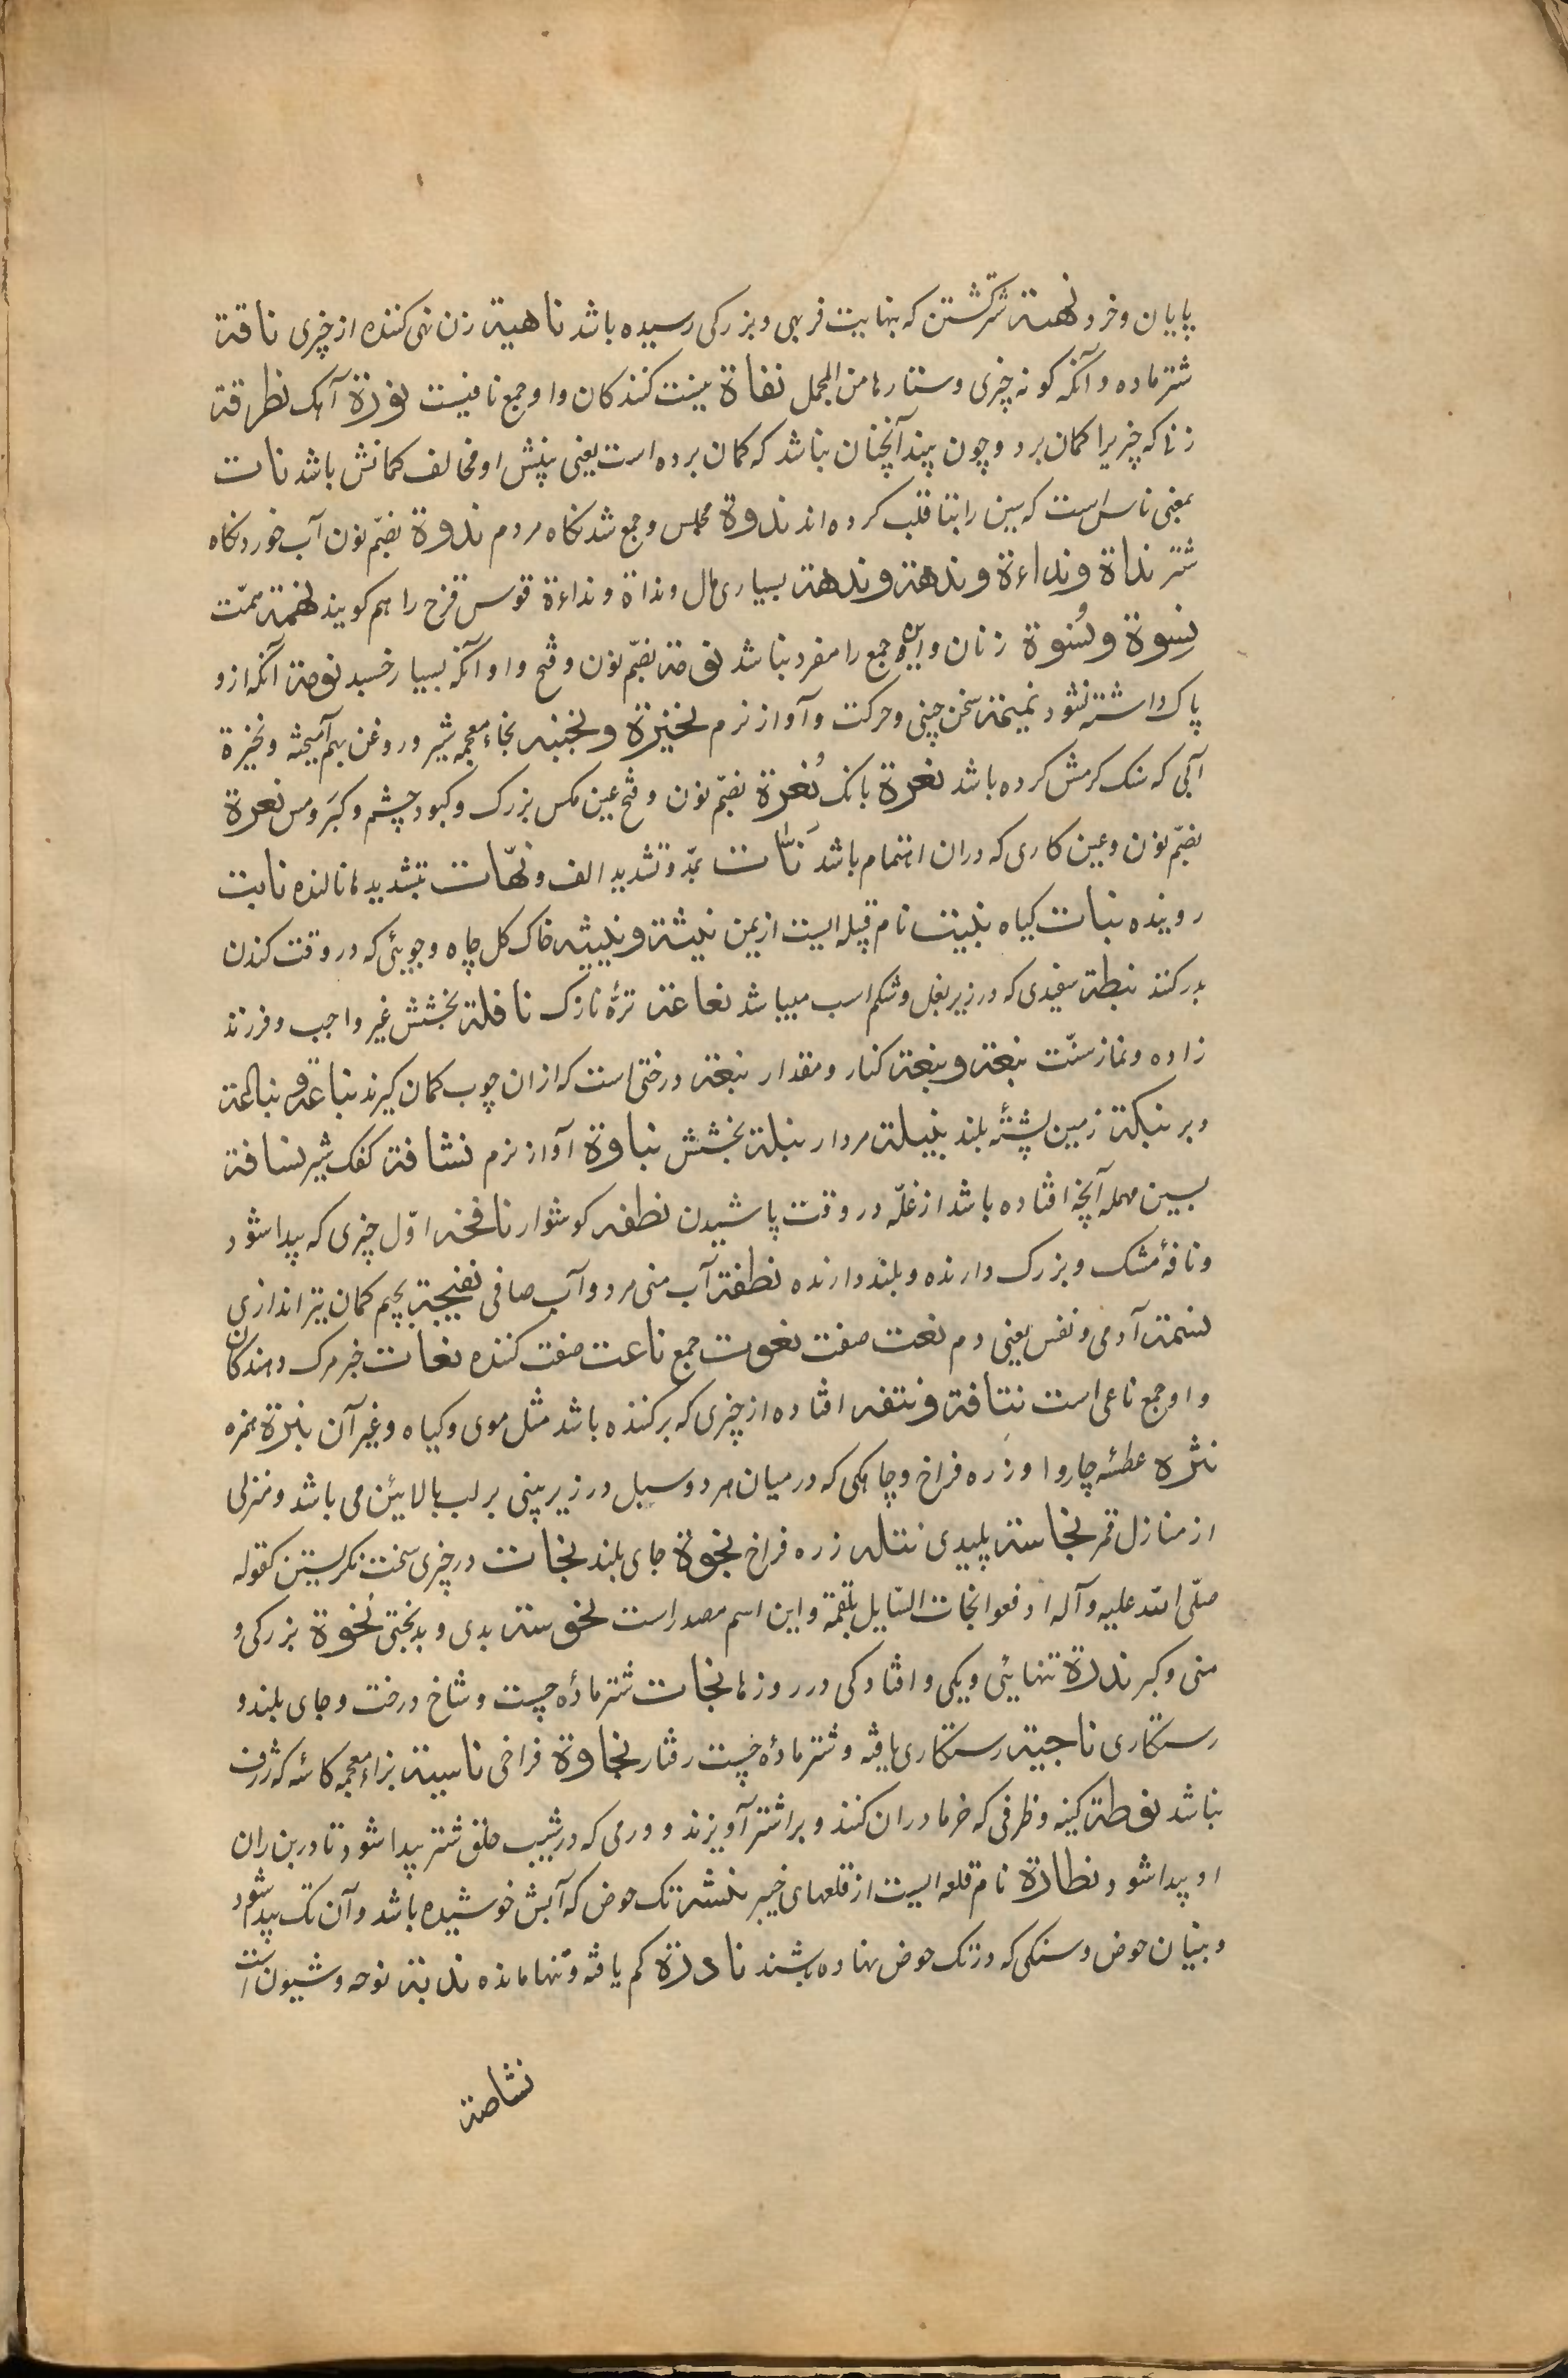 پایان و خرد نهیة شتر گشتن که بنهایت فربهی و بزرکی رسیده باشد ناهیة زن نهی کننده از چیزی ناقة
شتر ماده و آنکه کونه چیزی و ستارها من المجمل نفاة نیست کنندکان و او جمع نافیست نورة آهک نظرقة
زنا که چیزیرا کمان برد و چون بیند آنچنان نباشد که کمان برده است یعنی بینش او مخالف کمانش باشد نات
بمعنی ناس است که سین را بتا قلب کرده‌اند ندوة مجلس و جمع شد نکاه مردم ندوة بضمّ نون آب خورد نکاه
شتر نداة و نداءة و ندهة و ندهة بسیاری مال و نداة و نداءة قوس قزح را هم کویند نهمة همّت
نسوة و نُسوة زنان و این جمع را مفرد نباشد نومة بضمّ نون و فتح واو آنکه بسیار خسبد نومة آنکه ازو
پاک داشته نشود نمیمة سخن چینی و حرکت و آواز نرم نخیزة و نخیته بخاء معجمه شیر و روغن بهم آمیخته و نخیزة
آبی که سنک کرمش کرده باشد نعرة بانک نُعرة بضمّ نون و فتح عین مکس بزرک و کبود چشم و کبر و مس نعرة
بضمّ نون و عین کاری که دران اهتمام باشد نأّت بمدّ و تشدید الف و نهّات بتشدید ها نالنده نابت
روینده نبات کیاه نبیت نام قبیله ایست از یمن نبیثة و نبیثه خاک کل چاه و جویی که در وقت کندن
بدر کنند نبطة سفیدی که در زیر بغل و شکم اسب میباشد نعاعة ترهٔ نازک نافلة بخشش غیر واجب و فرزند
زاده و نماز سنّت نبعة و نبغة کنار و مقدار نبعة درختی است که ازان چوب کمان کیرند نباعة و نباعة
و بر نبکة زمین پشتهٔ بلند نبیلة مردار نبلة بخشش نباوة آواز نرم نشافة کفک شیر نسافة
بسین مهمله آنچه افتاده باشد از غلّه در وقت پاشیدن نطفه کوشوار نافجة اوّل چیزی که پیدا شود
و نافهٔ مشک و بزرک دارنده و بلند دارنده نطفة آب منی مرد و آب صافی نفیجة بجیم کمان تیر اندازی
نسمة آدمی و نفس یعنی دم نعت صفت نعوت جمع ناعت صفت کننده نعات خبر مرک دهندکان
و او جمع ناعی است نتافة و نتفه افتاده از چیزی که برکنده باشد مثل موی و کیاه و غیر آن نبرة همزه
نثره عطسهٔ چاروا و زره فراخ و چاهکی که درمیان هر دو سبل در زیر بینی بر لب بالائین می باشد و منزلی
از منازل قمر نجاسة پلیدی نثله زره فراخ نجوة جای بلند نجات در چیزی سخت نکریستن کقوله
صلّی الله علیه و آله ادفعوا نجات السّایل بلقمة و این اسم مصدر است نحوسة بدی و بدبختی نخوة بزرکی و
منی و کبر ندرة تنهایی و یکی و افتادکی در روزها نجات شتر مادهٔ چست و شاخ درخت و جای بلند و
رستکاری ناجیة رستکاری یافته و شتر مادهٔ چست رفتار نجاوة فراخی ناسیة بزاء معجمه کاسه که ژرف
نباشد نوطة کینه و ظرفی که خرما دران کنند و بر اشتر آویزند و ورمی که در شیب حلق شتر پیدا شود تا در بن ران
او پیدا شود نطارة نام قلعه ایست از قلعهای خیبر نشئة تک حوض که آبش خوشیده باشد و آن تک پیدا شود
و بنیان حوض و سنکی که در تک حوض نهاده باشند نادرة کم یافته و تنها مانده ندبة نوحه و شیون است
نشاصة